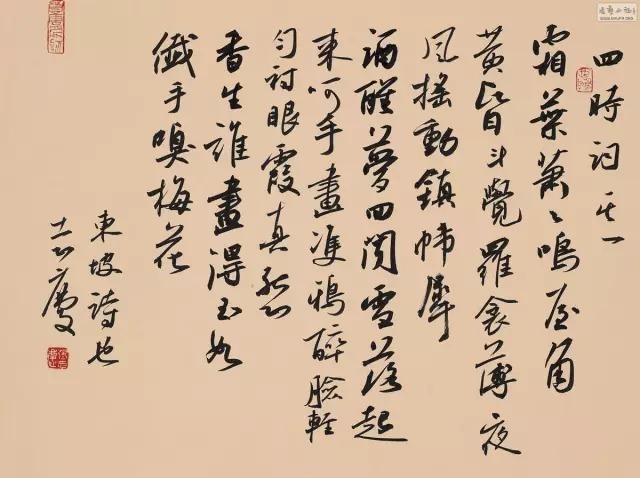 四時詞其一
霜葉蕭々鳴屋角
黄昏斗覺羅衾薄夜
風搖動鎮帏犀
酒醒夢回聞雪落起
來呵手畫雙鴉醉臉輕
勻衬眼霞真態
香生誰畫得玉如
纖手嗅梅花
東坡詩也